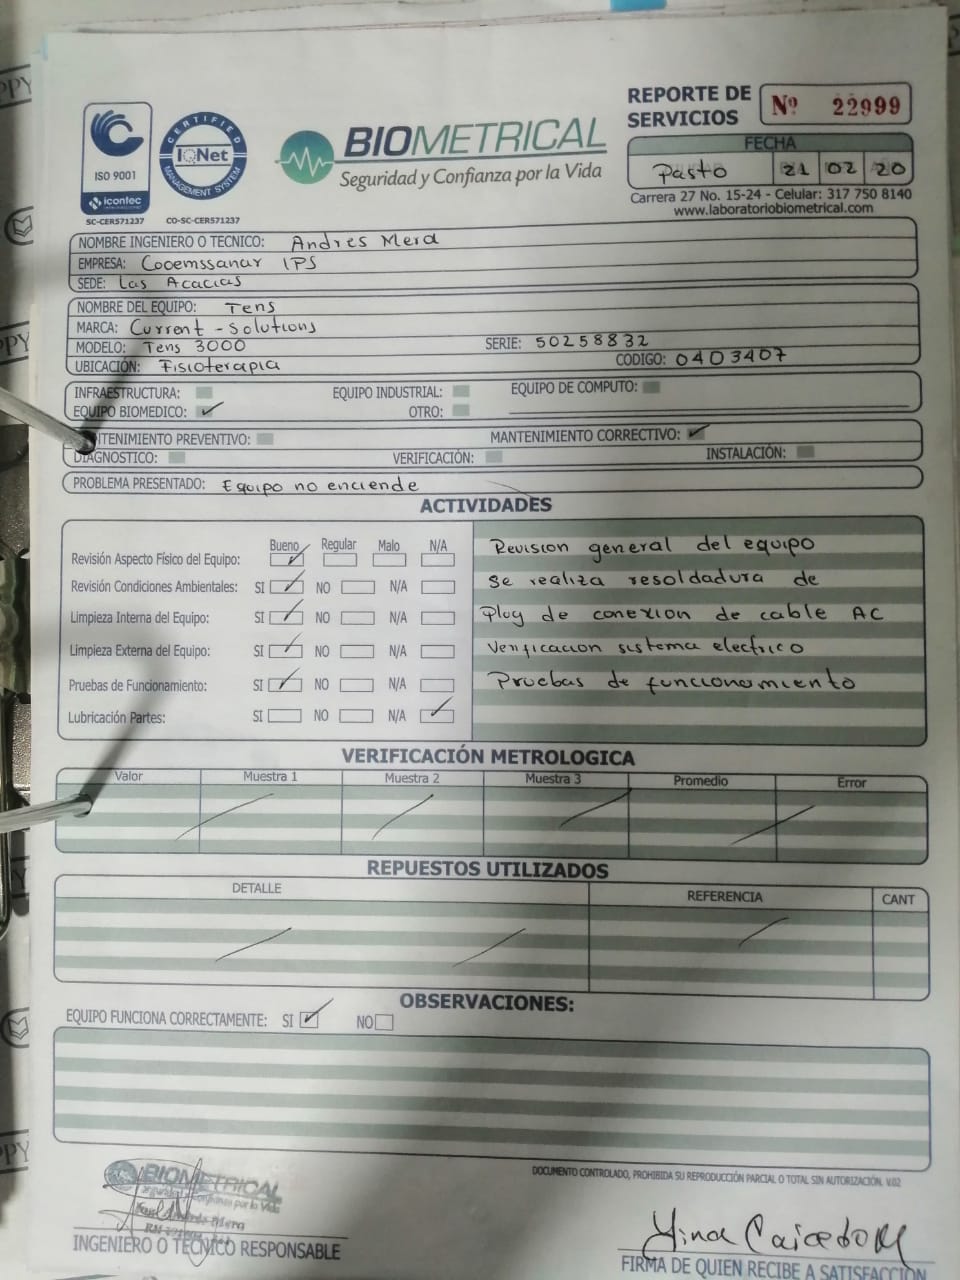 REPORTE DE SERVICIOS Nº 22999
ISO 9001
icontec
SC-CER571237
CERTIFIED
IQNet
MANAGEMENT SYSTEM
CO-SC-CER571237
BIOMETRICAL
Seguridad y Confianza por la Vida
FECHA
Pasto 21 02 20
Carrera 27 No. 15-24 - Celular: 317 750 8140
www.laboratoriobiometrical.com
NOMBRE INGENIERO O TECNICO: Andres Mera
EMPRESA: Cooemssanar IPS
SEDE: Las Acacias
NOMBRE DEL EQUIPO: Tens
MARCA: Current - Solutions
MODELO: Tens 3000 SERIE: 50258832
UBICACIÓN: Fisioterapia CODIGO: 0403407
INFRAESTRUCTURA: EQUIPO INDUSTRIAL: EQUIPO DE COMPUTO:
EQUIPO BIOMEDICO: ✓ OTRO:
NTENIMIENTO PREVENTIVO: MANTENIMIENTO CORRECTIVO: ✓
DIAGNOSTICO: VERIFICACIÓN: INSTALACIÓN:
PROBLEMA PRESENTADO: Equipo no enciende
ACTIVIDADES
Bueno Regular Malo N/A
Revisión Aspecto Físico del Equipo: ✓
Revisión Condiciones Ambientales: SI ✓ NO N/A
Limpieza Interna del Equipo: SI ✓ NO N/A
Limpieza Externa del Equipo: SI ✓ NO N/A
Pruebas de Funcionamiento: SI ✓ NO N/A
Lubricación Partes: SI NO N/A ✓
Revision general del equipo
se realiza resoldadura de
Plug de conexion de cable AC
Verificacion sistema electrico
Pruebas de funcionamiento
VERIFICACIÓN METROLOGICA
Valor Muestra 1 Muestra 2 Muestra 3 Promedio Error
REPUESTOS UTILIZADOS
DETALLE REFERENCIA CANT
OBSERVACIONES:
EQUIPO FUNCIONA CORRECTAMENTE: SI ✓ NO
DOCUMENTO CONTROLADO, PROHIBIDA SU REPRODUCCIÓN PARCIAL O TOTAL SIN AUTORIZACIÓN. V.02
BIOMETRICAL
Seguridad y Confianza por la Vida
INGENIERO O TÉCNICO RESPONSABLE
Yina Caicedo M
FIRMA DE QUIEN RECIBE A SATISFACCIÓN